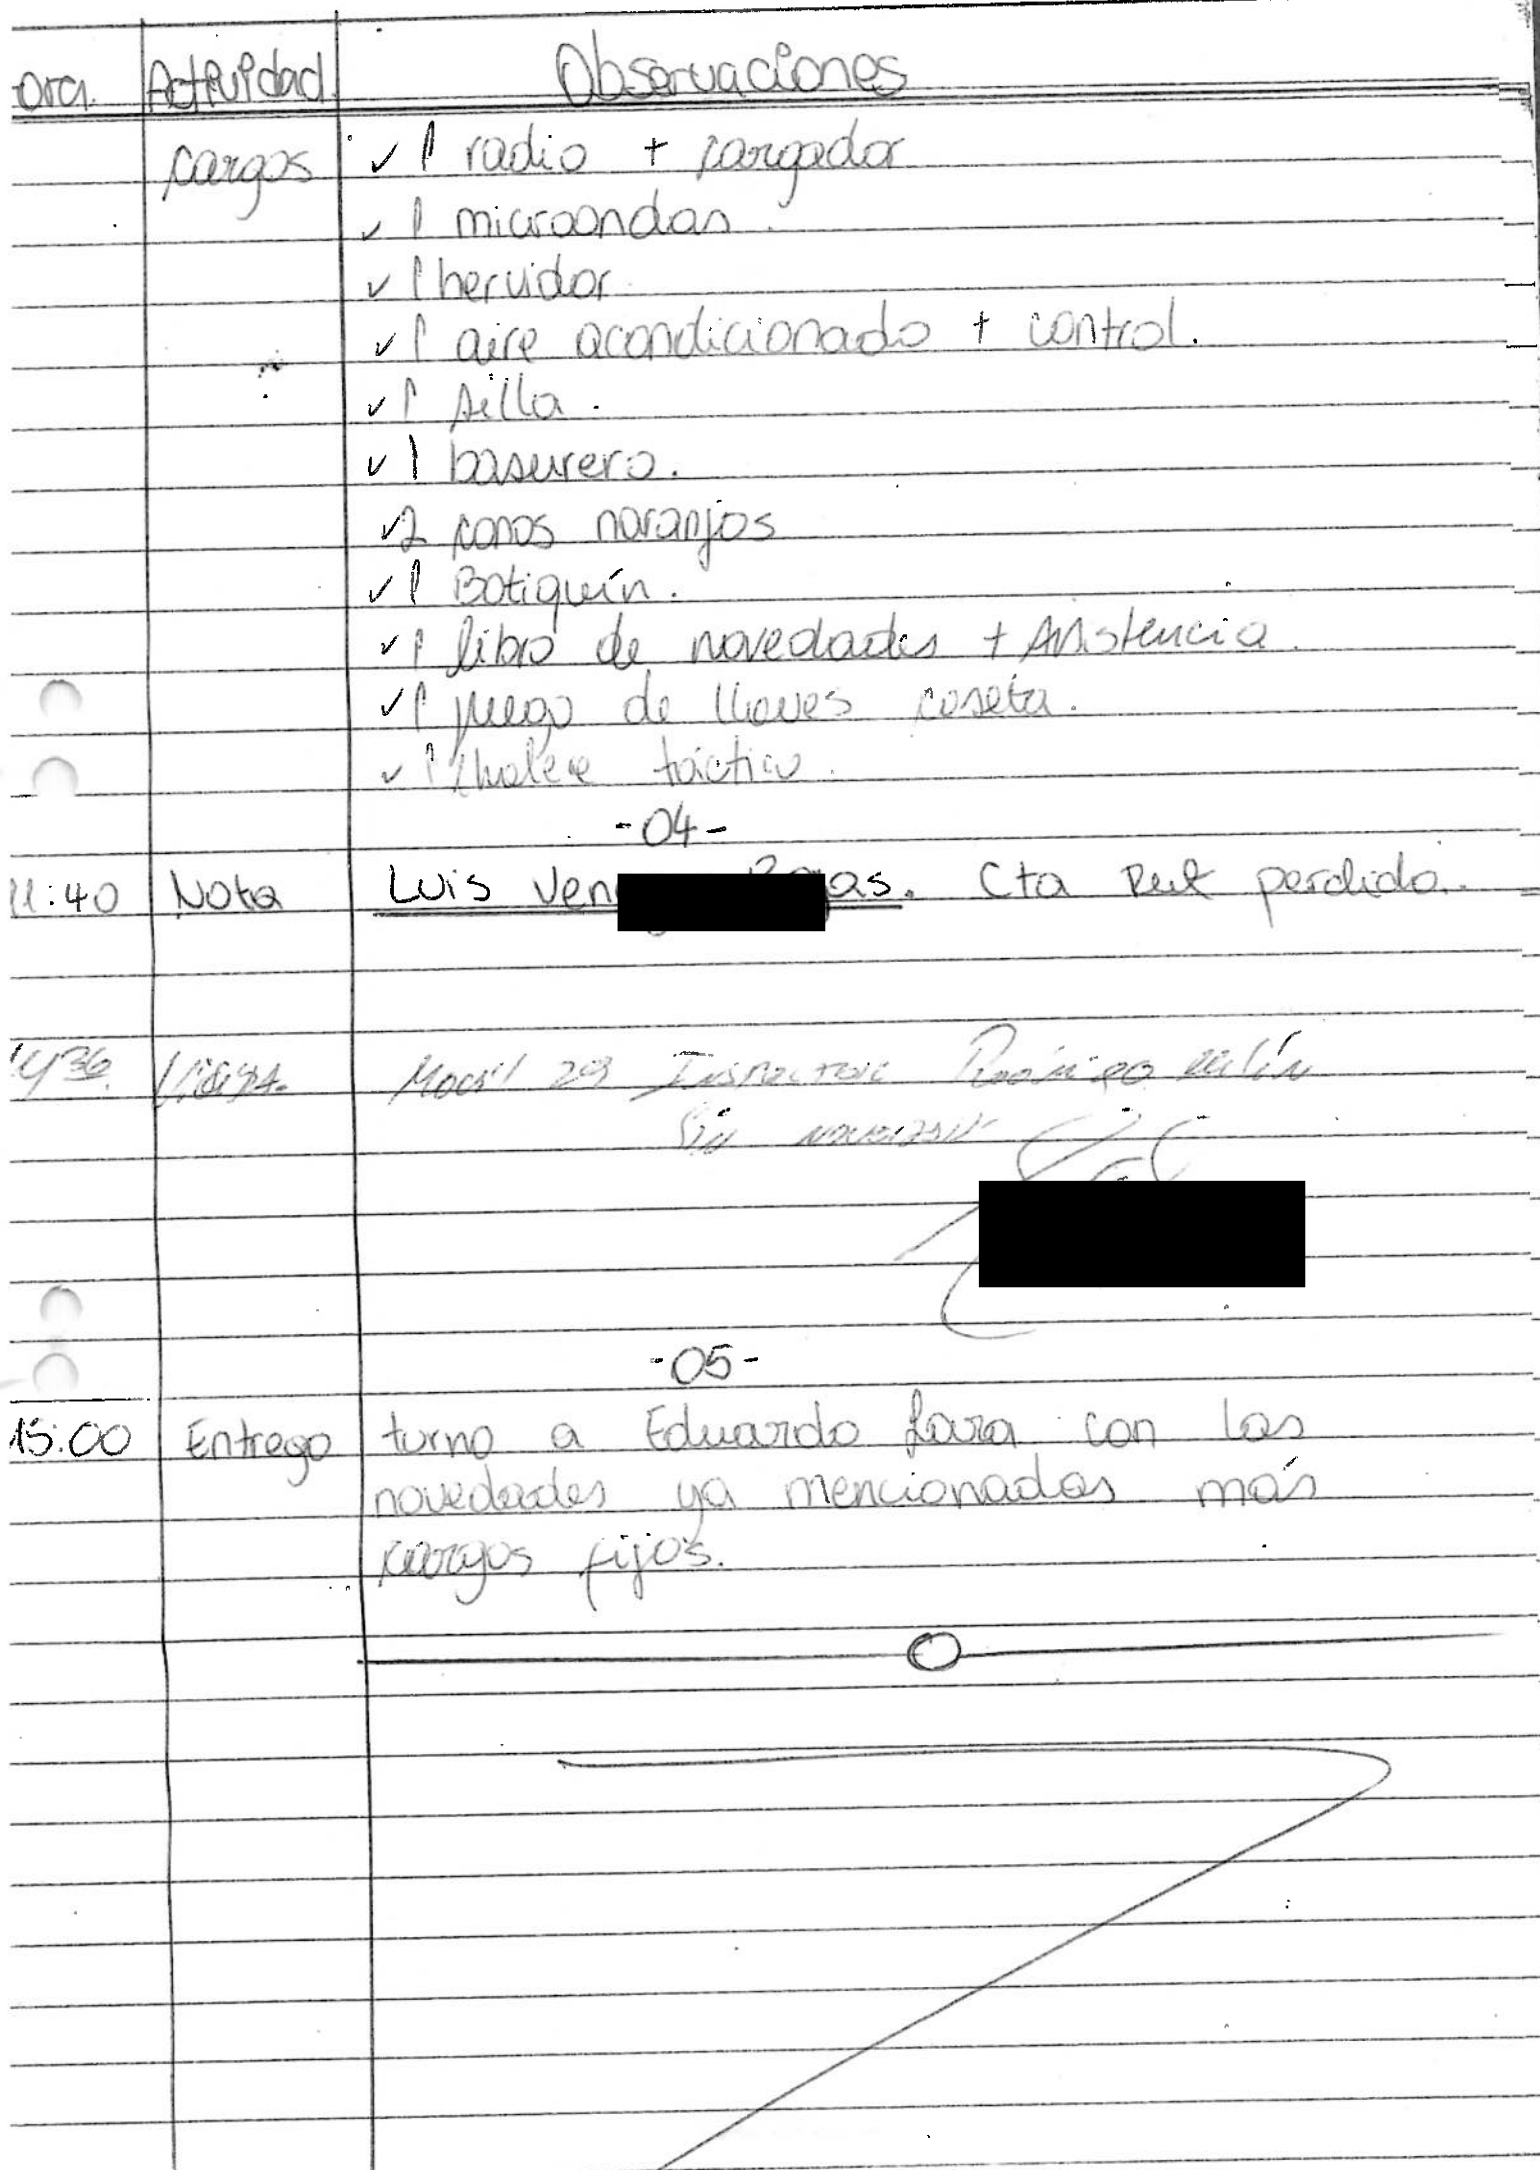 ora. Actividad. Observaciones
cargos ✓ 1 radio + cargador
✓ 1 microondas.
✓ 1 hervidor.
✓ 1 aire acondicionado + control.
✓ 1 silla.
✓ 1 basurero.
✓ 2 conos naranjos
✓ 1 Botiquín.
✓ 1 libro de novedades + Asistencia.
✓ 1 juego de llaves caseta.
✓ 1 táctico.
-04-
11:40 Nota Luis Ven as. Cta Rut perdida.
1436 Movil 29 Inspector
Sin novedad
-05-
15:00 Entrego turno a Eduardo Lara con las
novedades ya mencionadas más
cargos fijos.